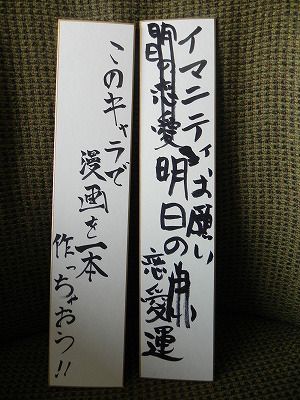 イマニティお願い
の恋愛明日の
恋愛運
このキャラで
漫画を一本
作っちゃおう!!